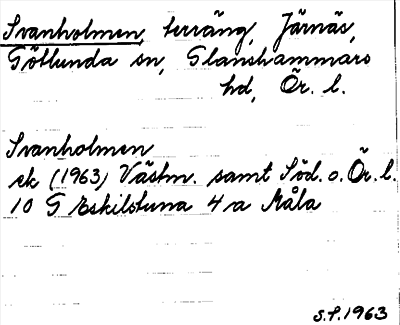 Svanholmen, terräng, Järnäs,
Götlunda sn, Glanshammars
hd, Ör. l.
Svanholmen
ek (1963) Västm. samt Söd. o. Ör. l.
10 G Eskilstuna 4 a Måla
S.F. 1963